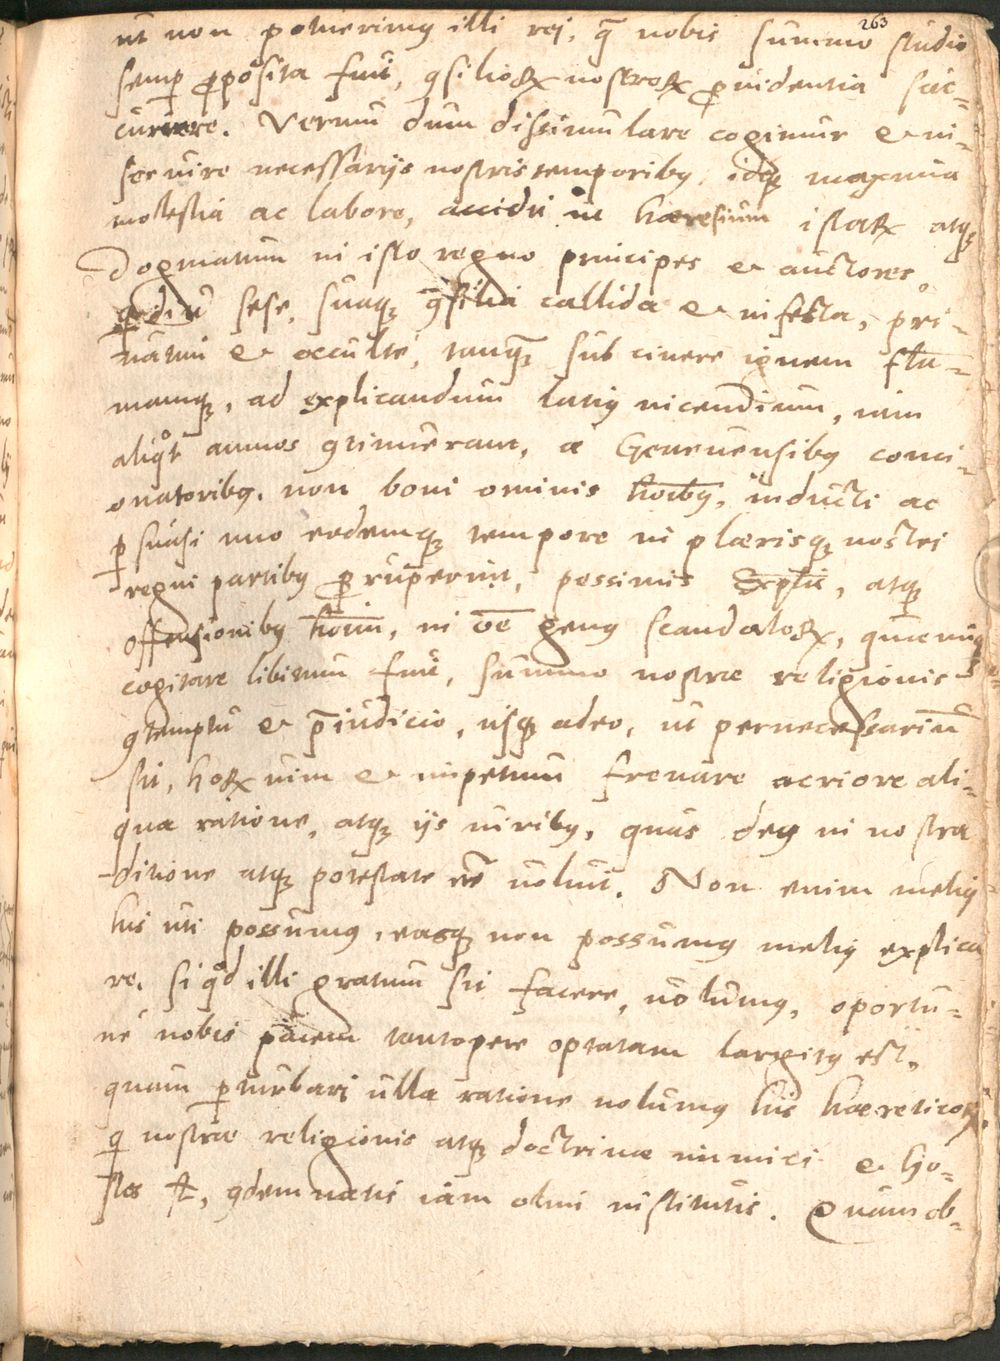 263
ut non potuerimus illi rei, quę nobis summo studio
semper proposita fuit, consiliorum nostrorum providentia suc-
currere. Verum dum dissimulare cogimur & in-
servire necessarijs nostris temporibus, idque maxima
molestia ac labore, accidit ut hæresium istarum atque
dogmatum in isto regno principes & auctores,
qui diu sese, suaque consilia callida & infesta, pri-
vatim & occulte, tanquam sub cinere ignem flā-
mamque, ad explicandum latius incendium, cum
aliquot annos continuerant, a Genevensibus conci-
onatoribus, non boni ominis hominibus, inducti ac
persuasi uno eodemque tempore in plærisque nostri
regni partibus proruperunt, pessimis exemplis, atque
offensionibus hominum, in omne genus scandalorum, quicunque
cogitare libitum fuit, summo nostræ religionis
contemptu & præiudicio, usque adeo, ut pernecessarium
sit, horum vim & impetum frenare acriore ali-
qua ratione, atque ijs viribus, quas deus in nostra
ditione atque potestate esse voluit. Non enim melius
his uti possumus, easque non possumus melius explica
re, si quid illi gratum sit facere, volumus, oportu-
ne nobis pacem tantopere optatam largitus est,
quam perturbari ulla ratione nolumus his hæreticorum,
qui nostræ religionis atque doctrinæ inimici & ho-
stes sunt, condemnatis iam olim institutis. Quam ob-